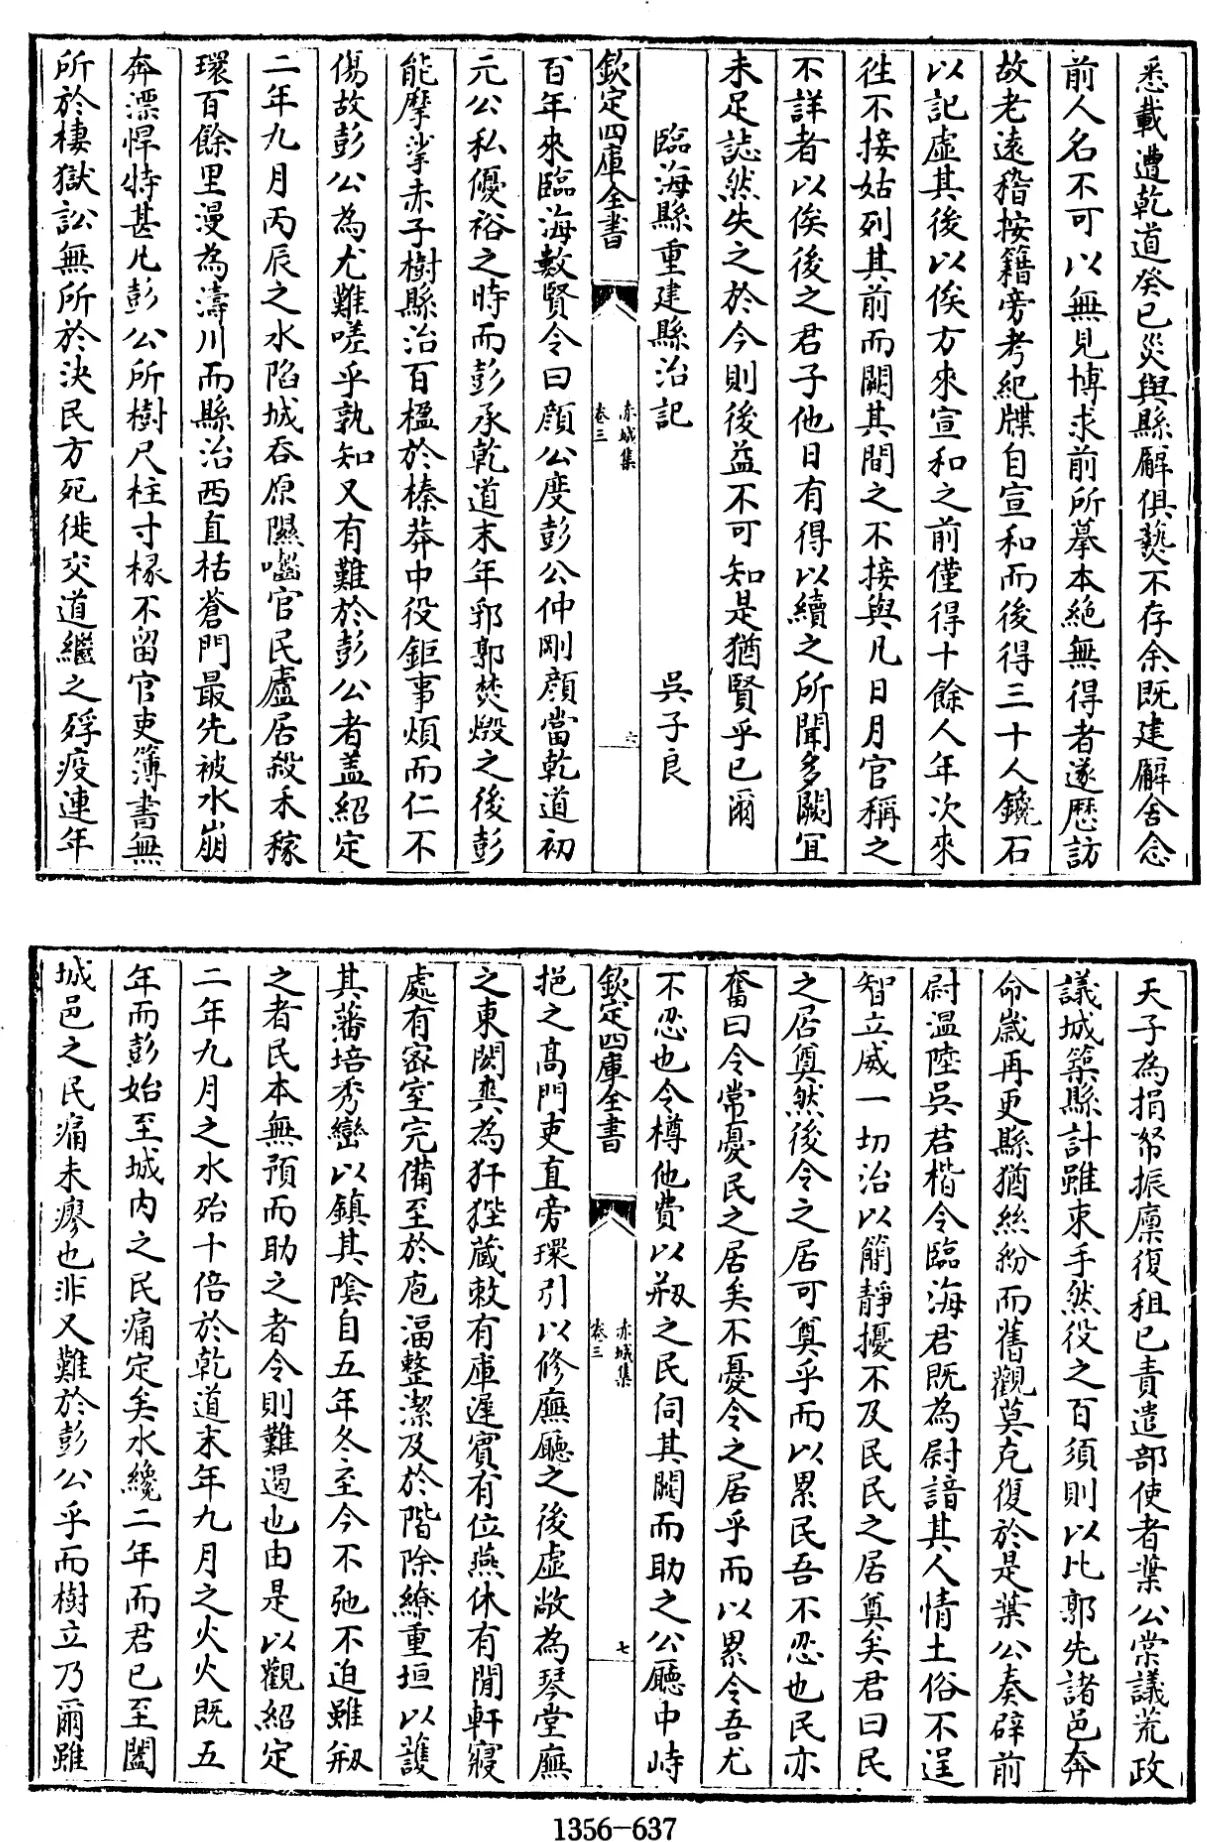 悉載遭乾道癸巳災與縣廨俱爇不存余既建廨舍念
前人名不可以無見博求前所摹本絶無得者遂歴訪
故老遠稽按籍旁考紀牒自宣和而後得三十人鑱石
以記虚其後以俟方來宣和之前僅得十餘人年次來
往不接姑列其前而闕其間之不接與凡日月官稱之
不詳者以俟後之君子他日有得以續之所聞多闕宜
未足誌然失之於今則後益不可知是猶賢乎已爾
臨海縣重建縣治記 吳子良
欽定四庫全書 赤城集 卷三 六
百年來臨海數賢令曰顔公度彭公仲剛顔當乾道初
元公私優裕之時而彭承乾道末年郛郭焚燬之後彭
能摩挲赤子樹縣治百楹於榛莽中役鉅事煩而仁不
傷故彭公為尤難嗟乎孰知又有難於彭公者盖紹定
二年九月丙辰之水陷城吞原隰囓官民廬居殺禾稼
環百餘里漫為濤川而縣治西直枯蒼門最先被水崩
奔漂悍特甚凡彭公所樹尺柱寸椽不留官吏簿書無
所於棲獄訟無所於決民方死徙交道繼之殍疫連年
天子為捐帑振廪復租已責遣部使者葉公棠議荒政
議城築縣計雖束手然役之百須則以比郭先諸邑奔
命歲再更縣猶絲紛而舊觀莫克復於是葉公奏辟前
尉温陸吳君楷令臨海君既為尉諳其人情土俗不逞
智立威一切治以簡靜擾不及民民之居奠矣君曰民
之居奠然後令之居可奠乎而以累民吾不忍也民亦
奮曰令常憂民之居矣不憂令之居乎而以累令吾尤
不忍也令樽他費以剙之民伺其闕而助之公廳中峙
欽定四庫全書 赤城集 卷三 七
挹之高門吏直旁環引以修廡廳之後虚敞為琴堂廡
之東閎爽為犴狴蔵敕有庫遲賓有位燕休有閒軒寢
處有宻室完備至於庖湢整潔及於階除繚重垣以護
其藩培秀巒以鎮其陰自五年冬至今不弛不迫雖剙
之者民本無預而助之者令則難遏也由是以觀紹定
二年九月之水殆十倍於乾道末年九月之火火既五
年而彭始至城内之民痛定矣水纔二年而君已至闔
城邑之民痛未瘳也非又難於彭公乎而樹立乃爾雖
1356-637